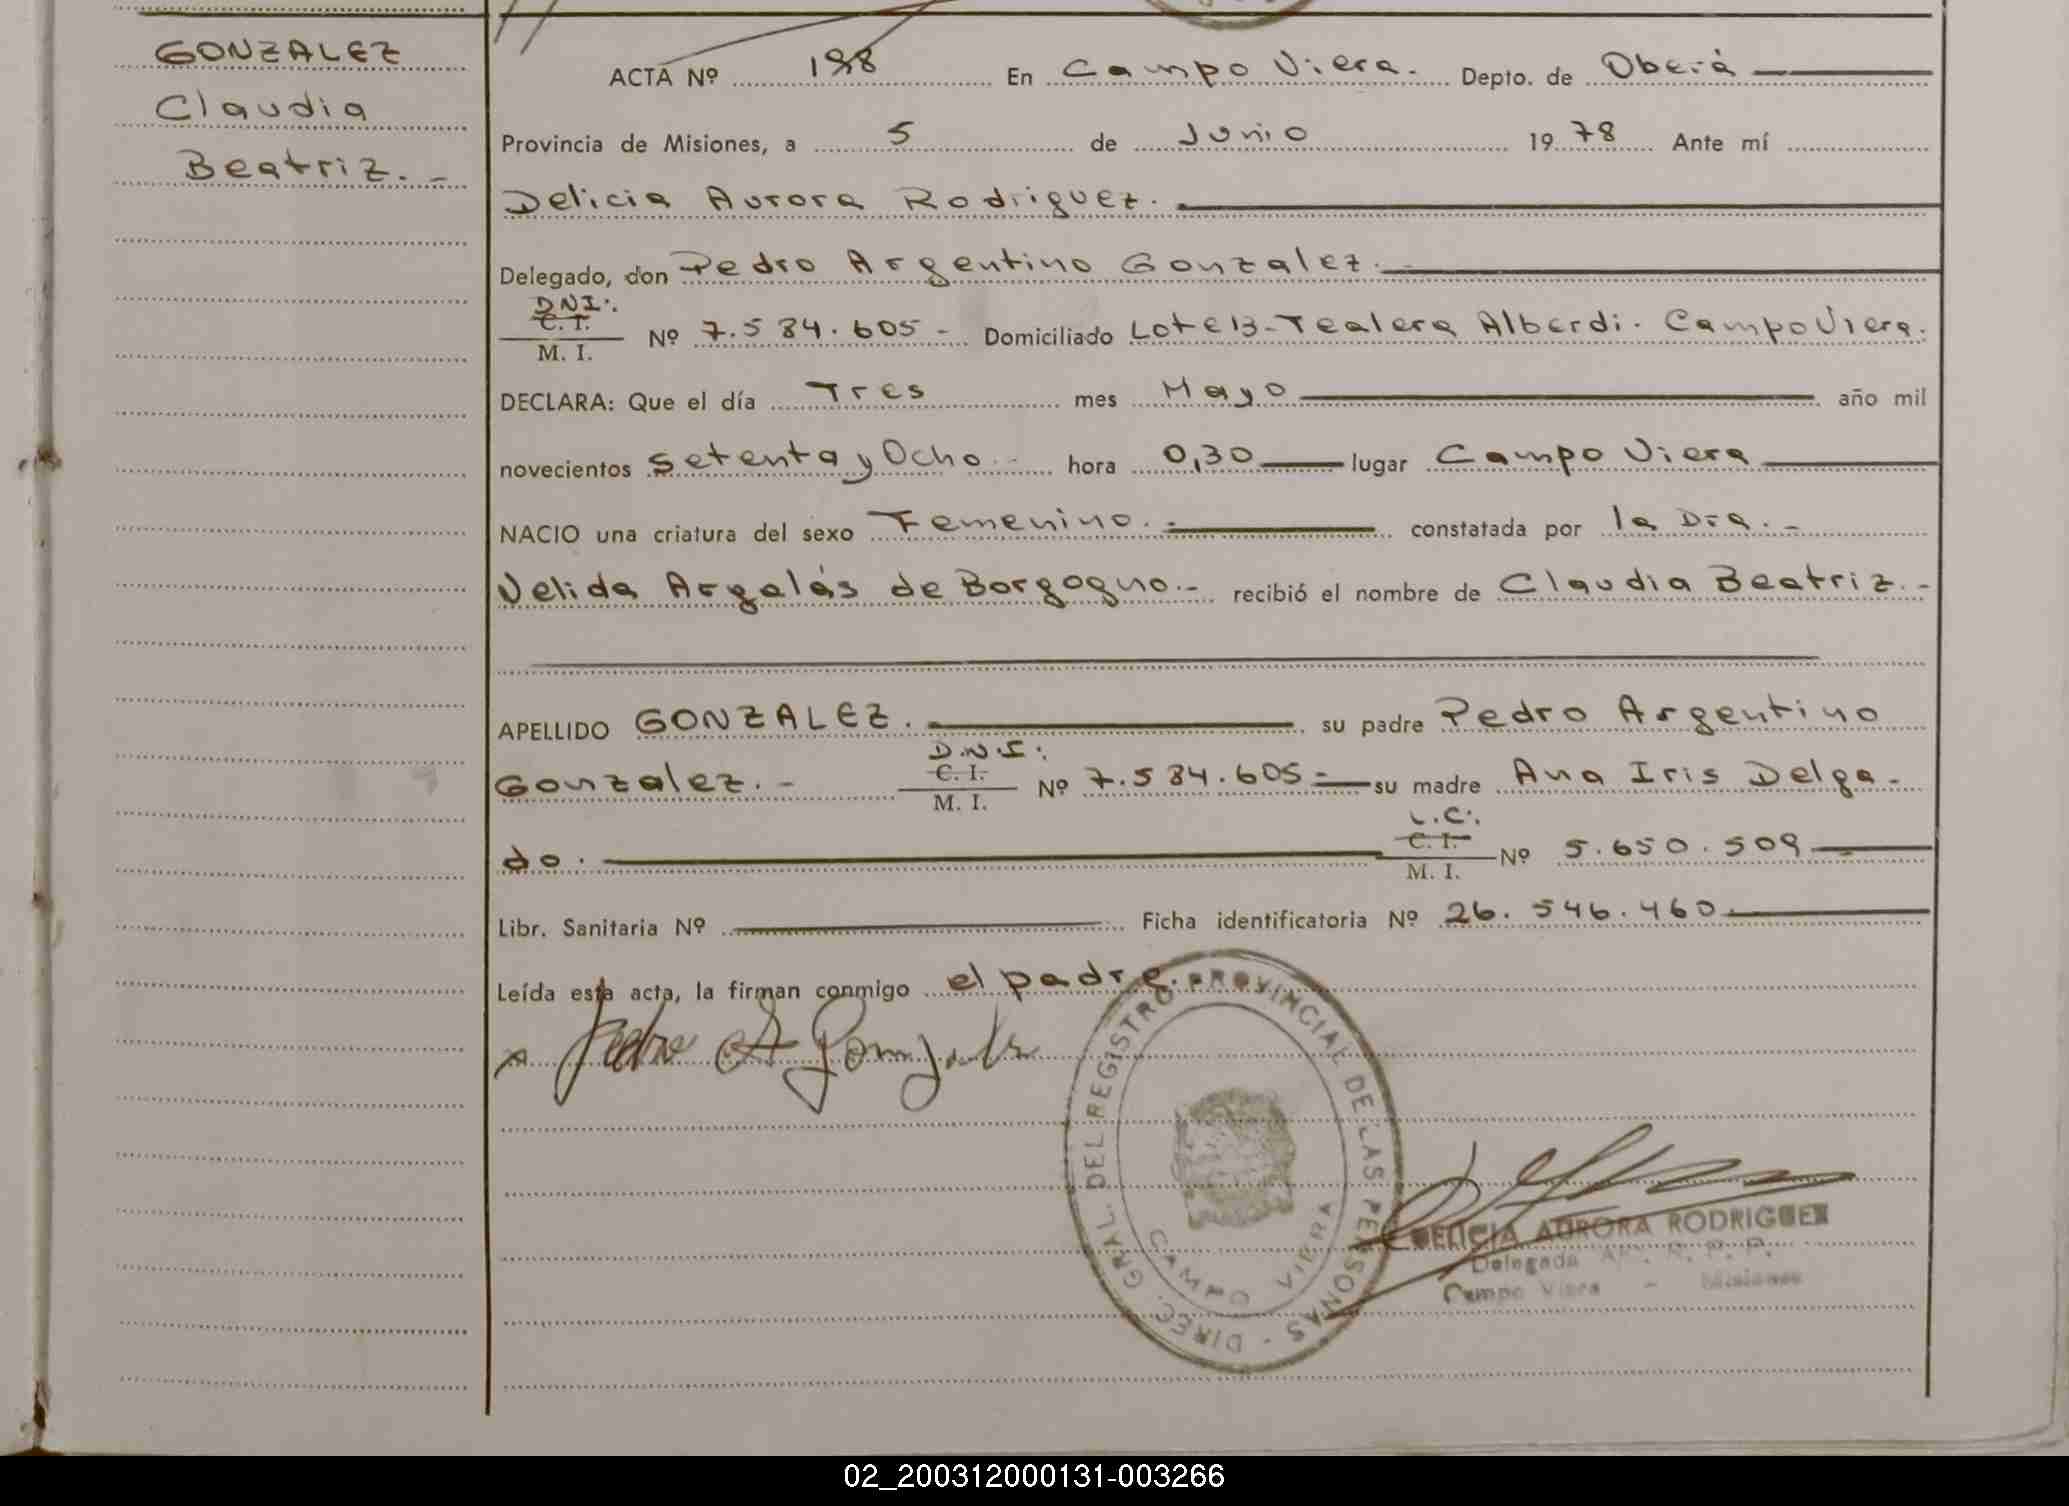 GONZALEZ
Claudia
Beatriz. -
ACTA Nº 198 En Campo Viera. Depto. de Oberá
Provincia de Misiones, a 5 de Junio 1978 Ante mí
Delicia Aurora Rodriguez.
Delegado, don Pedro Argentino Gonzalez. -
DNI:.
C. I.
M. I. Nº 7.584.605 - Domiciliado Lote 13-Tealera Alberdi. Campo Viera.
DECLARA: Que el día Tres mes Mayo año mil
novecientos setenta y Ocho. - hora 0,30 lugar Campo Viera
NACIO una criatura del sexo Femenino. - constatada por la Dra. -
Velida Argalás de Borgogno. - recibió el nombre de Claudia Beatriz. -
APELLIDO GONZALEZ. su padre Pedro Argentino
Gonzalez. - D.N.I: C. I. M. I. Nº 7.584.605 - su madre Ana Iris Delga-
do. L.C:. C. I. M. I. Nº 5.650.509
Libr. Sanitaria Nº Ficha identificatoria Nº 26.546.460.
Leída esta acta, la firman conmigo el padre.
x Pedro A Gonzalez
DIREC. GRAL. DEL REGISTRO PROVINCIAL DE LAS PERSONAS -
CAMPO VIERA
DELICIA AURORA RODRIGUEZ
Delegada R. P. P.
Campo Viera - Misiones
02_200312000131-003266